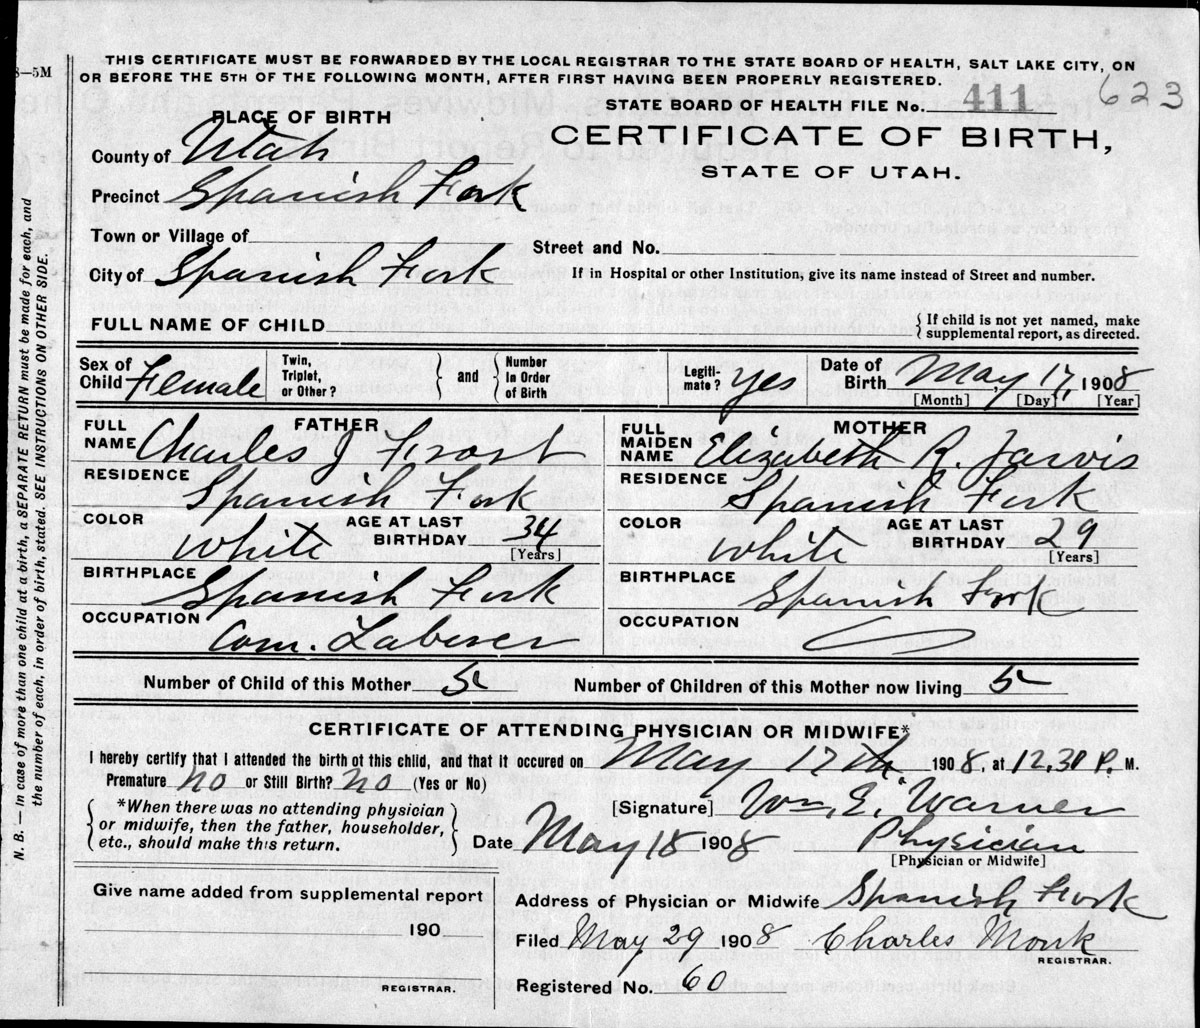 8—5M
THIS CERTIFICATE MUST BE FORWARDED BY THE LOCAL REGISTRAR TO THE STATE BOARD OF HEALTH, SALT LAKE CITY, ON
OR BEFORE THE 5TH OF THE FOLLOWING MONTH, AFTER FIRST HAVING BEEN PROPERLY REGISTERED.
STATE BOARD OF HEALTH FILE No. 411 623
PLACE OF BIRTH
CERTIFICATE OF BIRTH,
STATE OF UTAH.
County of Utah
Precinct Spanish Fork
Town or Village of
Street and No.
City of Spanish Fork
If in Hospital or other Institution, give its name instead of Street and number.
FULL NAME OF CHILD
{ If child is not yet named, make
supplemental report, as directed.
Sex of Child Female
Twin, Triplet, or Other? } and { Number In Order of Birth
Legiti-mate? yes
Date of Birth May 17, 1908
[Month] [Day] [Year]
FATHER
FULL NAME Charles J Frost
MOTHER
FULL MAIDEN NAME Elizabeth R. Jarvis
RESIDENCE Spanish Fork
RESIDENCE Spanish Fork
COLOR White AGE AT LAST BIRTHDAY 34 [Years]
COLOR White AGE AT LAST BIRTHDAY 29 [Years]
BIRTHPLACE Spanish Fork
BIRTHPLACE Spanish Fork
OCCUPATION Com. Laborer
OCCUPATION
Number of Child of this Mother 5 Number of Children of this Mother now living 5
CERTIFICATE OF ATTENDING PHYSICIAN OR MIDWIFE*
I hereby certify that I attended the birth of this child, and that it occured on May 17th 1908, at 12.30 P. M.
Premature no or Still Birth? no (Yes or No)
{ *When there was no attending physician
or midwife, then the father, householder,
etc., should make this return. }
[Signature] Wm. E. Warner
Date May 18 1908 Physician
[Physician or Midwife]
Give name added from supplemental report
190
REGISTRAR.
Address of Physician or Midwife Spanish Fork
Filed May 29 1908 Charles Monk
REGISTRAR.
Registered No. 60
N. B. — In case of more than one child at a birth, a SEPARATE RETURN must be made for each, and
the number of each, in order of birth, stated. SEE INSTRUCTIONS ON OTHER SIDE.